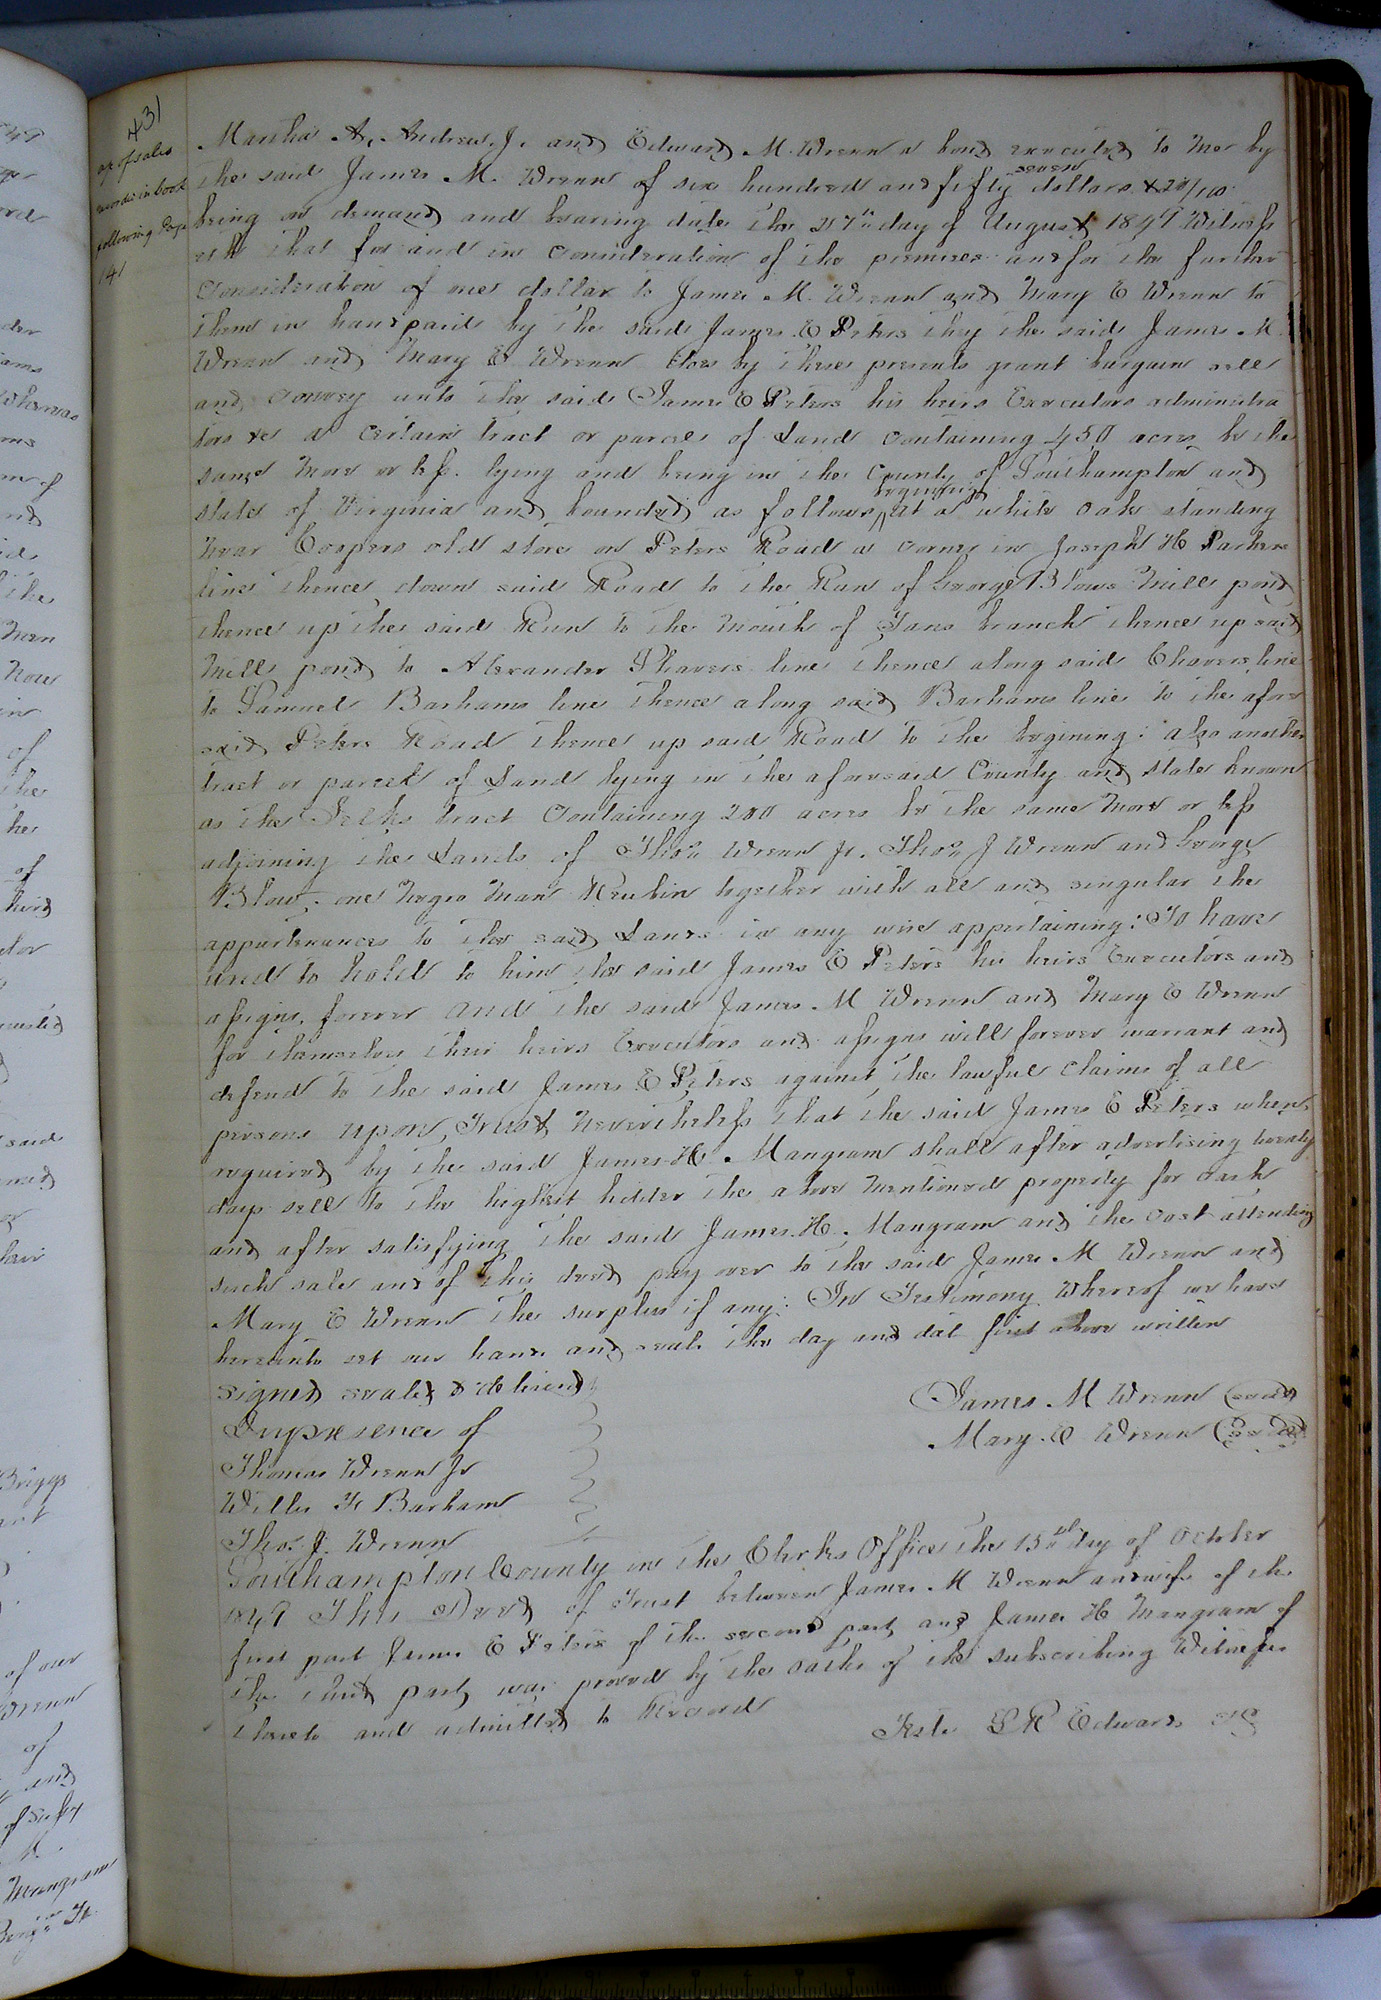 431
of sales
records in book
following Page
141
Martha A, Andrew J. and Edward M. Wrenn a bond executed to me by
the said James M. Wrenn of six hundred and fifty seven dollars & 20/100
being on demand and bearing date the 27th day of August 1849 Witness
eth that for and in consideration of the premises and for the further
consideration of one dollar to James M. Wrenn and Mary E Wrenn to
them in hand paid by the said James E Peters they the said James M.
Wrenn and Mary E Wrenn does by these presents grant bargain sell
and convey unto the said James E Peters his heirs Executors administra
tors &c a certain tract or parcel of Land containing 450 acres be the
same more or less. lying and being in the County of Southampton and
state of Virginia and bounded as follows begining at a white oak standing
near Coopers old store on Peters Road a corner in Joseph H Parkers
line thence down said Road to the Run of George Blows Mill pond
thence up the said Run to the Mouth of Tans branch thence up said
Mill pond to Alexander Chavers line thence along said Chavers line
to Samuel Barhams line thence along said Barhams line to the afore
said Peters Road thence up said Road to the begining: also another
tract or parcel of Land lying in the aforesaid County and state known
as the tract Containing 200 acres be the same more or less
adjoining the Lands of Thos Wrenn Jr. Thos J Wrenn and George
Blow, one Negro Man Reubin together with all and singular the
appurtenances to the said Lands in any wise appertaining: To have
and to hold to him the said James E Peters his heirs Executors and
assigns forever and the said James M Wrenn and Mary E Wrenn
for themselves their heirs Executors and assigns will forever warrant and
defend to the said James E Peters against the lawful claims of all
persons upon, Trust Nevertheless that the said James E Peters when
required by the said James H. Mangram shall after advertising twenty
days sell to the highest bidder the above mentioned property for cash
and after satisfying the said James H. Mangram and the cost attending
such sale and of this deed pay over to the said James M Wrenn and
Mary E Wrenn the surplus if any: In Testimony whereof we have
hereunto set our hands and seals the day and dat first above written
signed sealed & delivered
In presence of
James M Wrenn (seal)
Mary E Wrenn (seal)
Thomas Wrenn Jr
Willis F Barham
Thos. J. Wrenn
Southampton County in the Clerks Office the 15th day of October
1849 This Deed of Trust between James M Wrenn and wife of the
first part James E Peters of the second part and James H Mangram of
the third part, was proved by the oaths of the subscribing Witnesses
thereto and admitted to Record
Teste L R Edwards